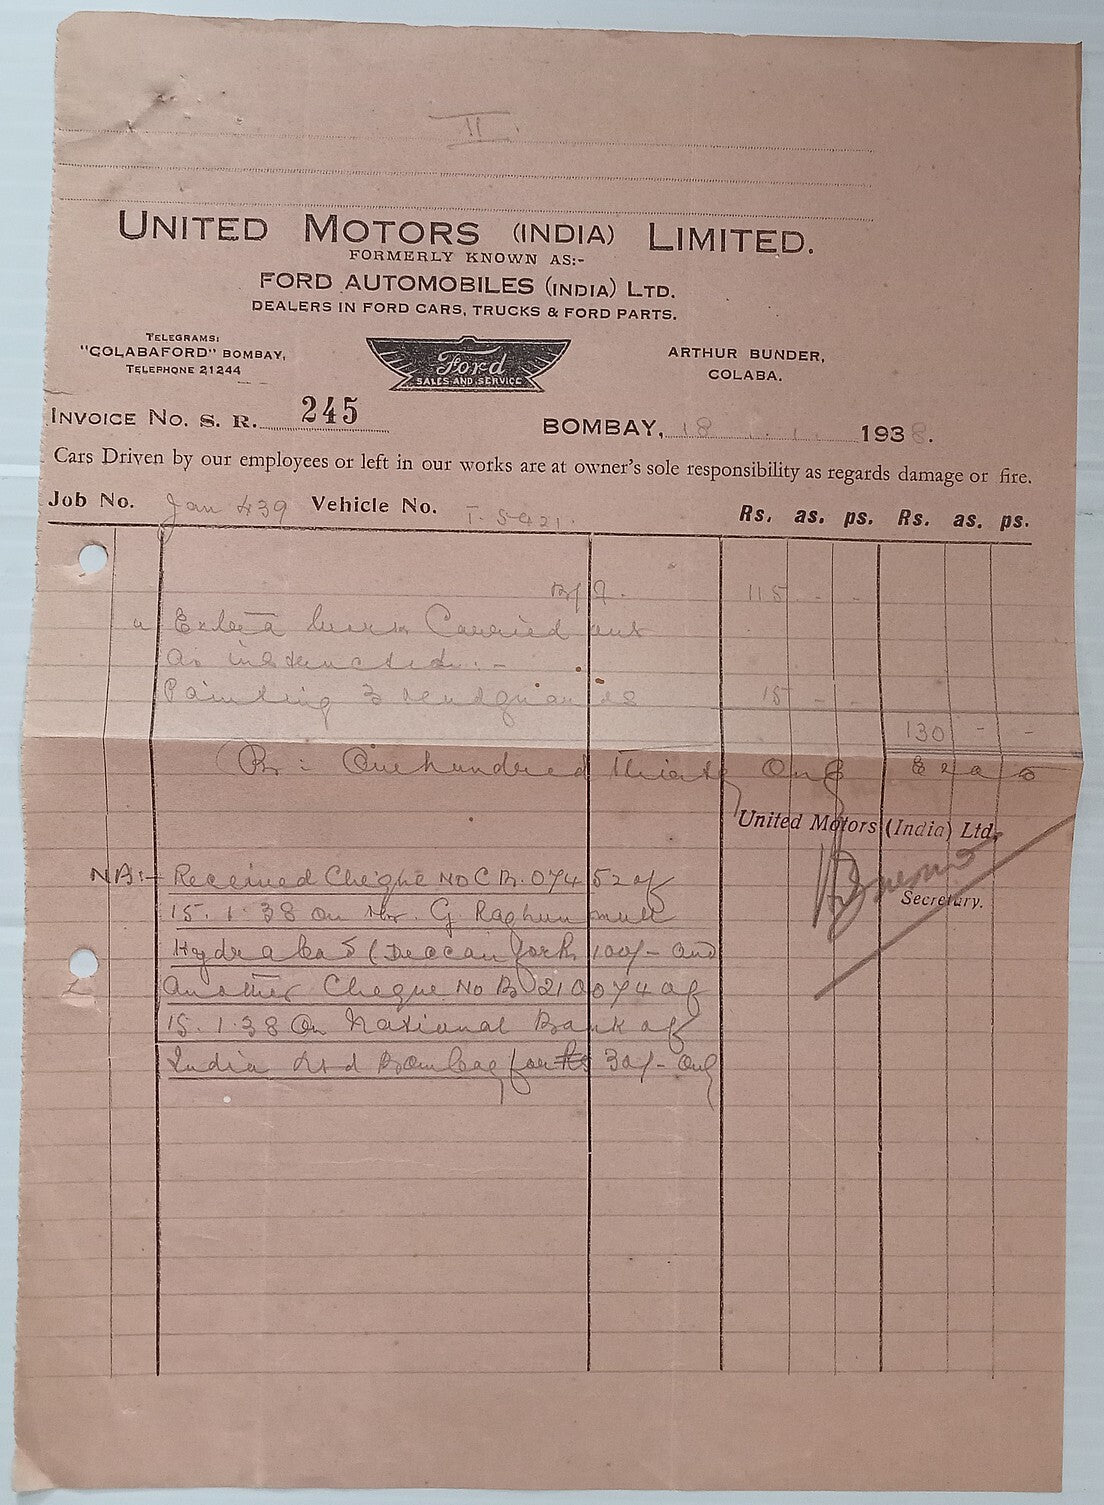 II
UNITED MOTORS (INDIA) LIMITED.
FORMERLY KNOWN AS:-
FORD AUTOMOBILES (INDIA) LTD.
DEALERS IN FORD CARS, TRUCKS & FORD PARTS.
TELEGRAMS:
"COLABAFORD" BOMBAY,
TELEPHONE 21244
Ford
SALES AND SERVICE
ARTHUR BUNDER,
COLABA.
INVOICE NO. S. R. 245
BOMBAY, 18 . 1. 1938.
Cars Driven by our employees or left in our works are at owner's sole responsibility as regards damage or fire.
Job No. Jan 439 Vehicle No. T. 5921.
Rs. as. ps. Rs. as. ps.
B/F. 115 - -
Extra work Carried out
As instructed :-
Painting 3 mudguards 15 - -
130 - -
(Rs: One hundred thirty Only E & O E
United Motors (India) Ltd.
Secretary.
NB:- Received Cheque No C B. 07452 of
15. 1. 38 on Mr. G Raghunmull
Hyderabad (Deccan for Rs 100/- and
Another Cheque No B 210074 of
15. 1. 38 On National Bank of
India Ltd Bombay for Rs 30/- only